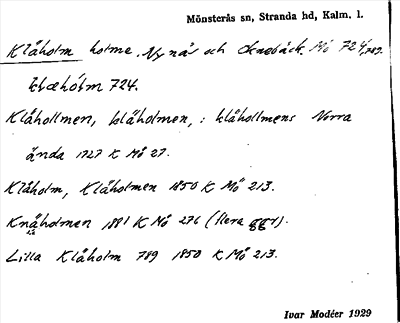 Mönsterås sn, Stranda hd, Kalm. l.
Klåholm holme. Nynäs och Oknebäck. Mö 724, 789.
klæhólm 724.
Klåhollmen, klåholmen, : klåhollmens Norra
ända 1727 K Mö 27.
Klåholm, Klåholmen 1850 K Mö 213.
Knåholmen 1881 K Mö 276 (flera ggr).
Lilla Klåholm 789 1850 K Mö 213.
Ivar Modéer 1929